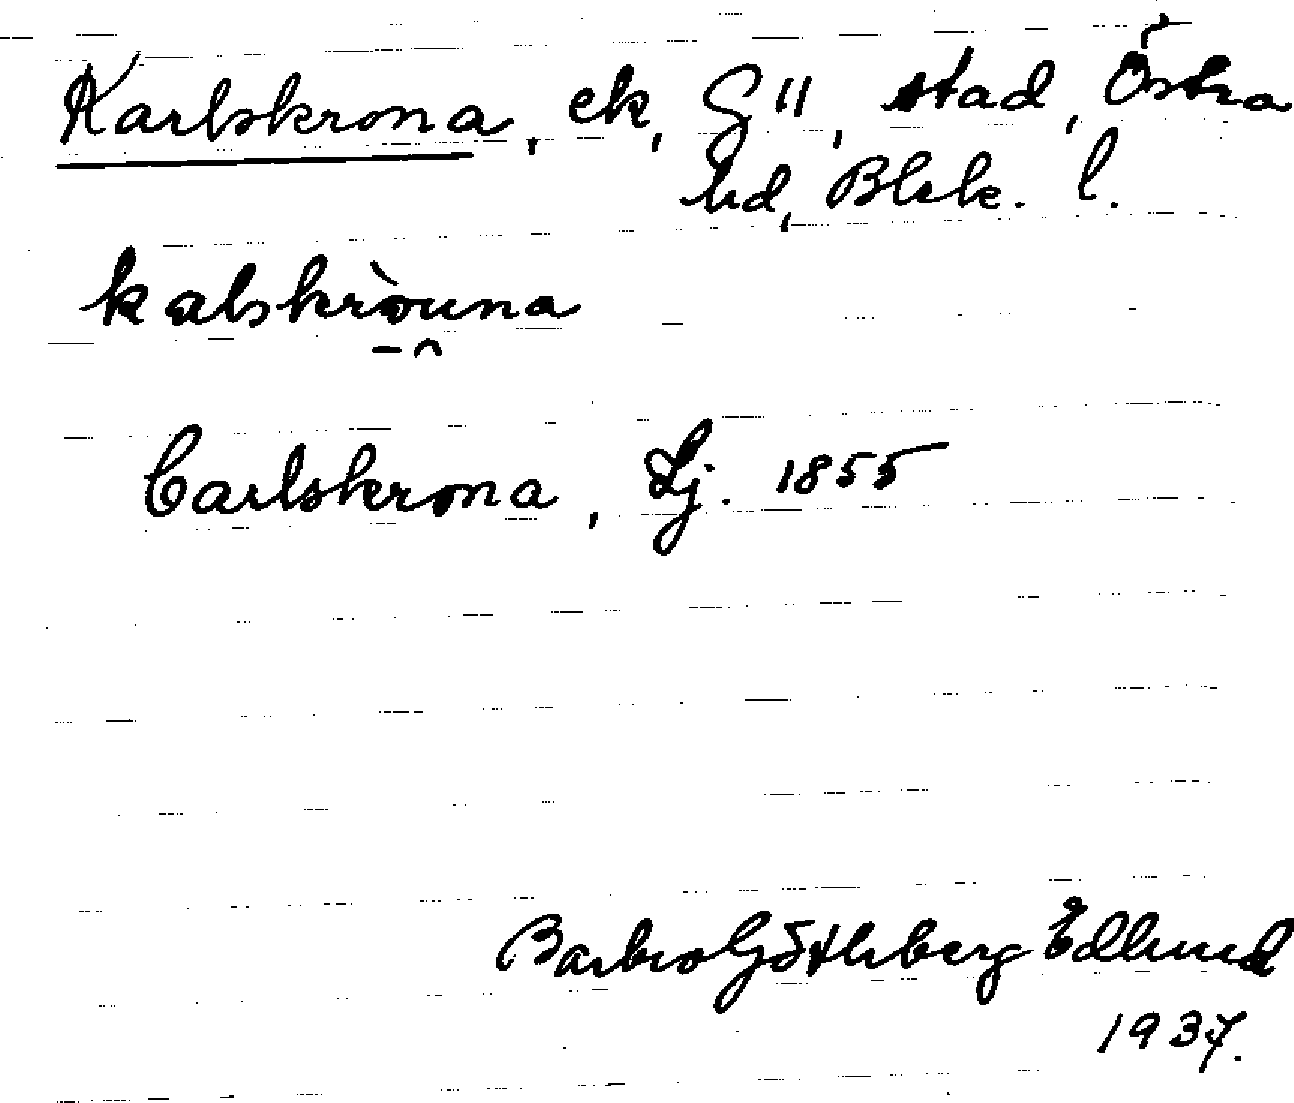 Karlskrona, ek, G 11, stad, Östra
hd, Blek. l.
kalskròuna
Carlskrona, Lj. 1855
Barbro Götheberg Edlund
1937.